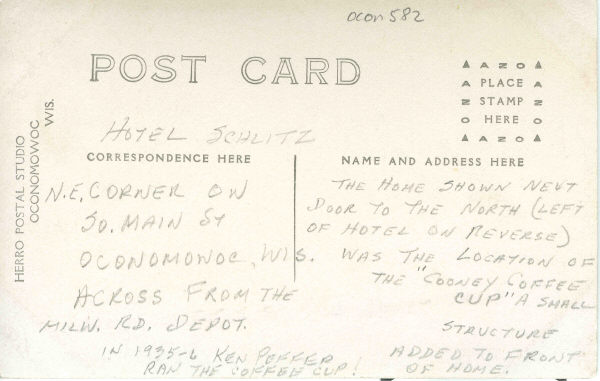 ocon 582
POST CARD
▲ A Z O ▲
A PLACE A
Z STAMP Z
O HERE O
▲ A Z O ▲
HOTEL SCHLITZ
CORRESPONDENCE HERE
N.E. CORNER ON
SO. MAIN ST
OCONOMOWOC, WIS.
ACROSS FROM THE
MILW. RD. DEPOT.
IN 1935-6 KEN PEFFER
RAN THE COFFEE CUP!
NAME AND ADDRESS HERE
THE HOME SHOWN NEXT
DOOR TO THE NORTH (LEFT
OF HOTEL ON REVERSE)
WAS THE LOCATION OF
THE "COONEY COFFEE
CUP" A SMALL
STRUCTURE
ADDED TO FRONT
OF HOME.
HERRO POSTAL STUDIO
OCONOMOWOC
WIS.